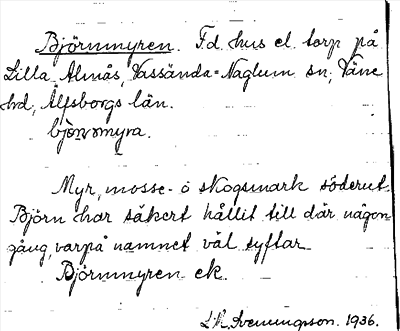 Björnmyren. F.d. hus el. torp på
Lilla Almås, Vassända-Naglum sn, Väne
hrd, Älfsborgs län.
bjö̀rnmyra.
Myr, mosse- o skogsmark söderut.
Björn har säkert hållit till där någon
gång, varpå namnet väl syftar
Björnmyren ek.
Svenningson. 1936.